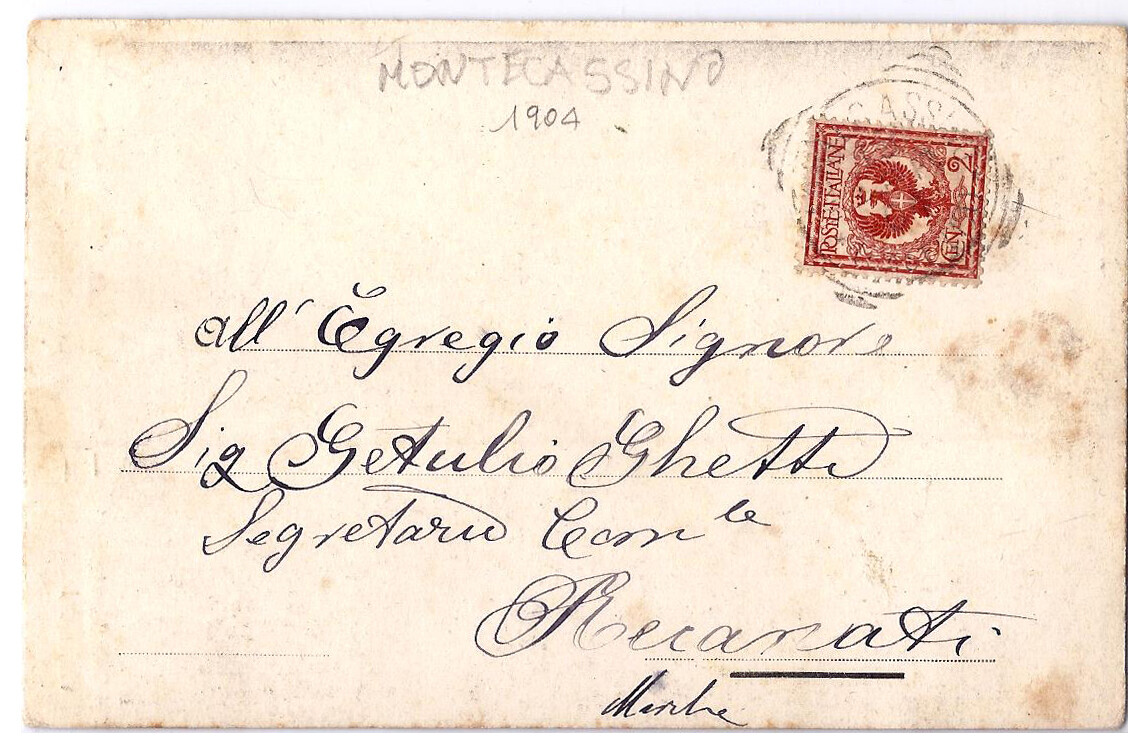 MONTECASSINO
1904
CASSI
POSTE·ITALIANE
2
CEN
all' Egregio Signore
Sig Getulio Ghetti
Segretario Com le
Recanati
Marche